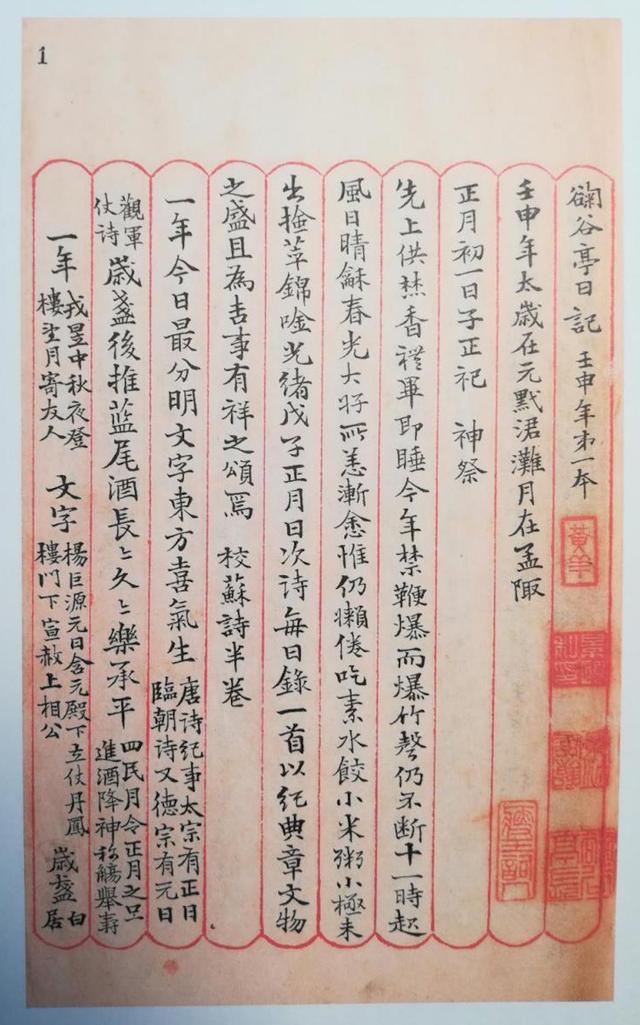 1
鞠谷亭日記 壬申年第一本
壬申年太歲在元默涒灘月在孟陬
正月初一日子正祀 神祭
先上供焚香禮畢即睡今年禁鞭爆而爆竹聲仍不断十一時起
風日晴龢春光大好所恙漸愈惟仍懶倦吃素水餃小米粥小極未
出撿萃錦唫光緒戊子正月日次詩每日錄一首以紀典章文物
之盛且為吉事有祥之頌焉 校蘇詩半卷
一年今日最分明文字東方喜氣生 唐诗纪事太宗有正日
臨朝诗又德宗有元日
觀軍
仗诗 歲盞後推蓝尾酒長〻久〻樂承平 四民月令正月之旦
進酒降神称觴舉壽
一年 戎昱中秋夜登
樓望月寄友人 文字 楊巨源元日含元殿下立仗丹鳳
樓門下宣赦上相公 歲盞 白
居
黃羊